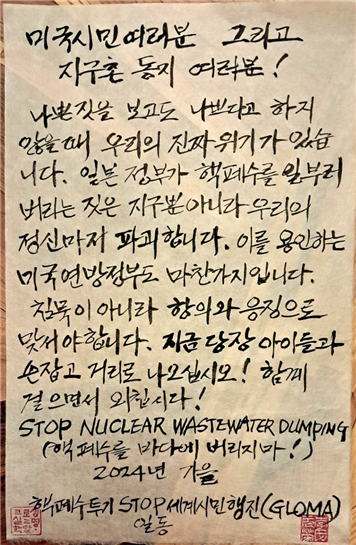 미국시민여러분 그리고
지구촌 동지 여러분!
나쁜짓을 보고도 나쁘다고 하지
않을 때 우리의 진짜 위기가 있습
니다. 일본 정부가 핵폐수를 일부러
버리는 짓은 지구뿐아니라 우리의
정신마저 파괴합니다. 이를 용인하는
미국연방정부도 마찬가지입니다.
침묵이 아니라 항의와 응징으로
맞서야합니다. 지금 당장 아이들과
손잡고 거리로 나오십시오! 함께
걸으면서 외칩시다!
STOP NUCLEAR WASTEWATER DUMPING
(핵폐수를 바다에 버리지마!)
2024년 가을
핵폐수투기 STOP 세계시민행진(GLOMA)
일동